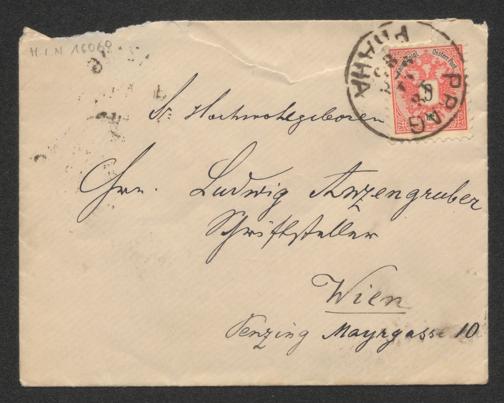 H.I.N 16069
PRAG
PRAHA
5
Sr. Hochwohlgeboren
Hrn. Ludwig Anzengruber
Schriftsteller
Wien
Penzing Mayrgasse 10